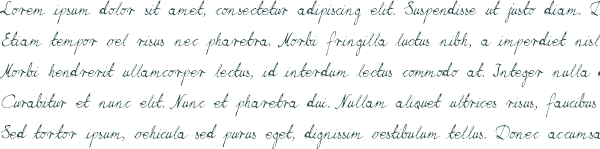 Lorem ipsum dolor sit amet, consectetur adipiscing elit. Suspendisse ut justo diam. D
Etiam tempor vel risus nec pharetra. Morbi fringilla luctus nibh, a imperdiet nisl
Morbi hendrerit ullamcorper lectus, id interdum lectus commodo at. Integer nulla
Curabitur et nunc elit. Nunc et pharetra dui. Nullam aliquet ultrices risus, faucibus
Sed tortor ipsum, vehicula sed purus eget, dignissim vestibulum tellus. Donec accumsa